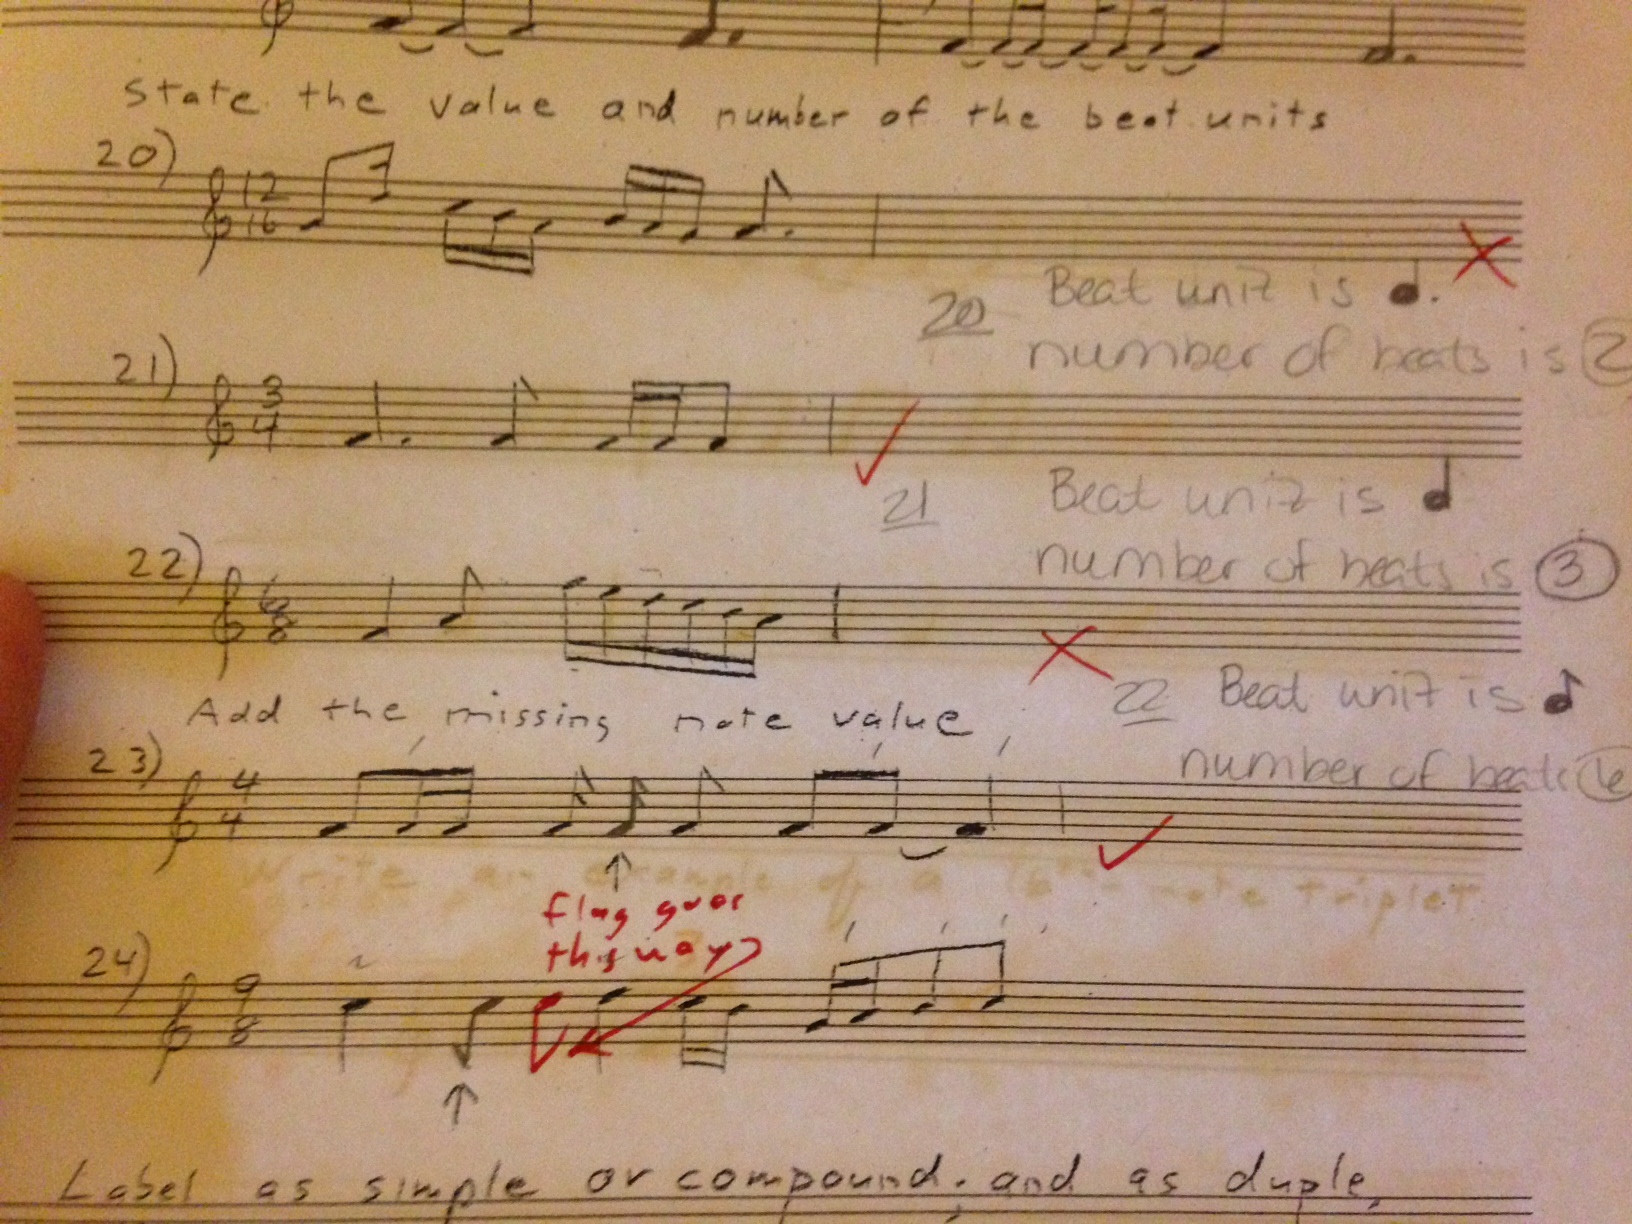 State the value and number of the beat units
20)
12
16
20 Beat unit is ♩.
number of beats is 2
21)
3
4
21 Beat unit is ♩
number of beats is 3
22)
6
8
22 Beat unit is ♪
number of beats 6
Add the missing note value
23)
4
4
Write an example of a 16th note triplet
flag goes
this way
24)
9
8
Label as simple or compound. and as duple,